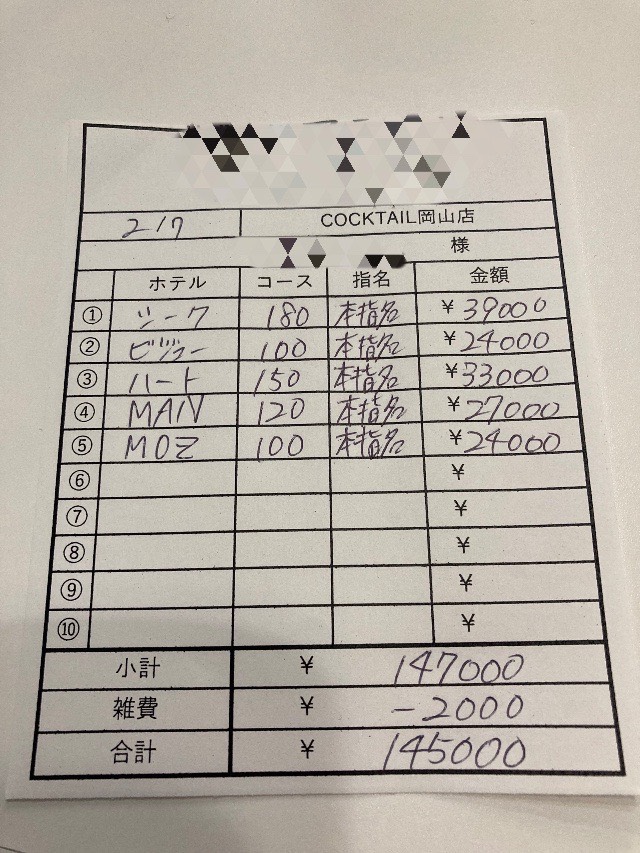 2/17 COCKTAIL岡山店
様
ホテル コース 指名 金額
① シーク 180 本指名 ¥39000
② ビジュー 100 本指名 ¥24000
③ ハート 150 本指名 ¥33000
④ MAN 120 本指名 ¥27000
⑤ MOZ 100 本指名 ¥24000
⑥ ¥
⑦ ¥
⑧ ¥
⑨ ¥
⑩ ¥
小計 ¥ 147000
雑費 ¥ -2000
合計 ¥ 145000